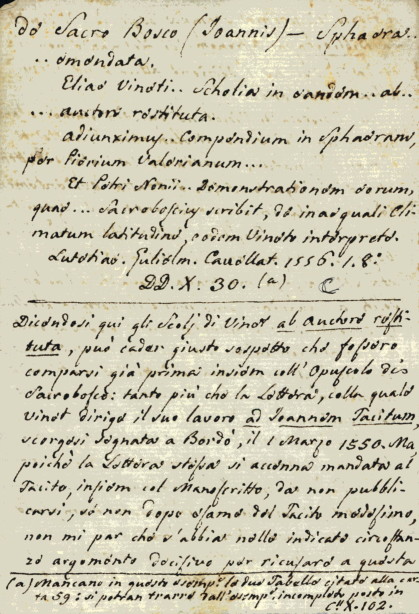 de Sacro Bosco (Joannis) — Sphaera..
.. emendata.
Eliae Vineti.. Scholia in eandem.. ab..
... auctore restituta.
adiunximus.. Compendium in Sphaeram,
per Pierium Valerianum...
Et Petri Nonii.. Demonstrationem eorum,
quae... Sacroboscius scribit, de inaequali Cli-
matum latitudine, eodem Vineto interprete.
Lutetiae. Gulielm. Cavellat. 1556. 1. 8.°
DD. X. 30. (a)
Dicendosi qui gli Scolj di Vinet ab Auctore resti-
tuta, può cader giusto sospetto che fossero
comparsi già prima insiem coll' Opuscolo di
Sacrobosco: tanto più che la Lettera, colla quale
Vinet dirige il suo lavoro ad Joannem Tacitum,
scorgesi segnata a Bordò, il 1 Marzo 1550. Ma
poichè la Lettera stessa si accenna mandata al
Tacito, insiem col Manoscritto, da non pubbli-
carsi, se non dopo esame del Tacito medesimo,
non mi par che s'abbia nelle indicate circostan-
ze argomento decisivo per ricusare a questa
(a) Mancano in questo esemp.e le due Tabelle citate alla car-
ta 59: si potran trarre dall'esemp. incompleto posto in
C. X. 102.